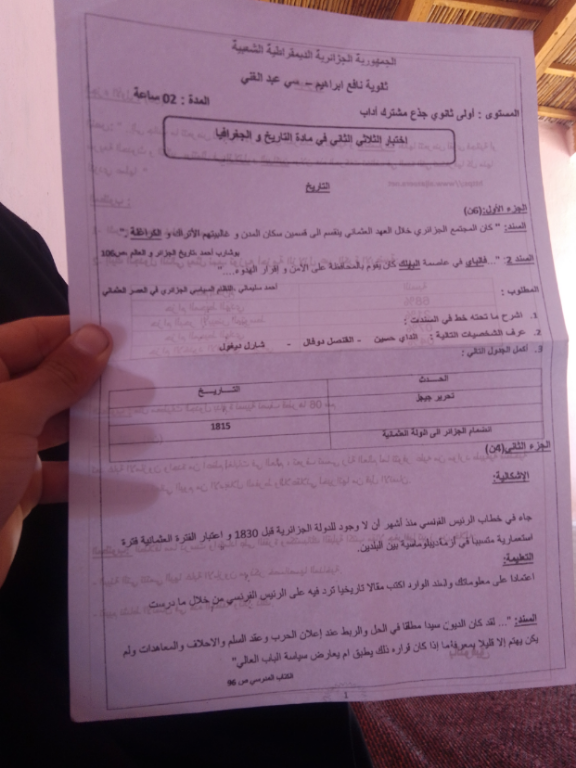 الجمهورية الجزائرية الديمقراطية الشعبية
ثانوية نافع ابراهيم – سي عبد الغني
المستوى : أولى ثانوي جذع مشترك آداب
المدة : 02 ساعة
اختبار الثلاثي الثاني في مادة التاريخ و الجغرافيا
التاريخ
الجزء الأول:(6ن)
السند: " كان المجتمع الجزائري خلال العهد العثماني ينقسم الى قسمين سكان المدن و غالبيتهم الأتراك و الكراغلة :"
بوشارب أحمد ،تاريخ الجزائر و العالم ،ص106
السند 2: "...فالباي في عاصمة البايلك كان يقوم بالمحافظة على الأمن و إقرار الهدوء..."
أحمد سليماني ،النظام السياسي الجزائري في العصر العثماني
المطلوب :
1. اشرح ما تحته خط في السندات :
2. عرف الشخصيات التالية : الداي حسين - القنصل دوفال - شارل ديغول
3. أكمل الجدول التالي :
الحـــدث التـــاريـــخ
تحرير جيجل
1815
انضمام الجزائر الى الدولة العثمانية
الجزء الثاني(4ن)
الاشكالية:
جاء في خطاب الرئيس الفرنسي منذ أشهر أن لا وجود للدولة الجزائرية قبل 1830 و اعتبار الفترة العثمانية فترة
استعمارية متسببا في أزمة ديبلوماسية بين البلدين.
التعليمة:
اعتمادا على معلوماتك والسند الوارد اكتب مقالا تاريخيا ترد فيه على الرئيس الفرنسي من خلال ما درست
السند: "... لقد كان الديوان سيدا مطلقا في الحل والربط عند إعلان الحرب وعقد السلم والاحلاف والمعاهدات ولم
يكن يهتم إلا قليلا بمعرفة ما إذا كان قراره ذلك يطابق ام يعارض سياسة الباب العالي"
الكتاب المدرسي ص 96
1